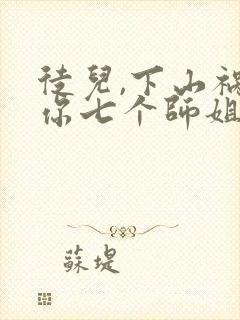 徒兒,下山禍
你七个師姐
蘇堤